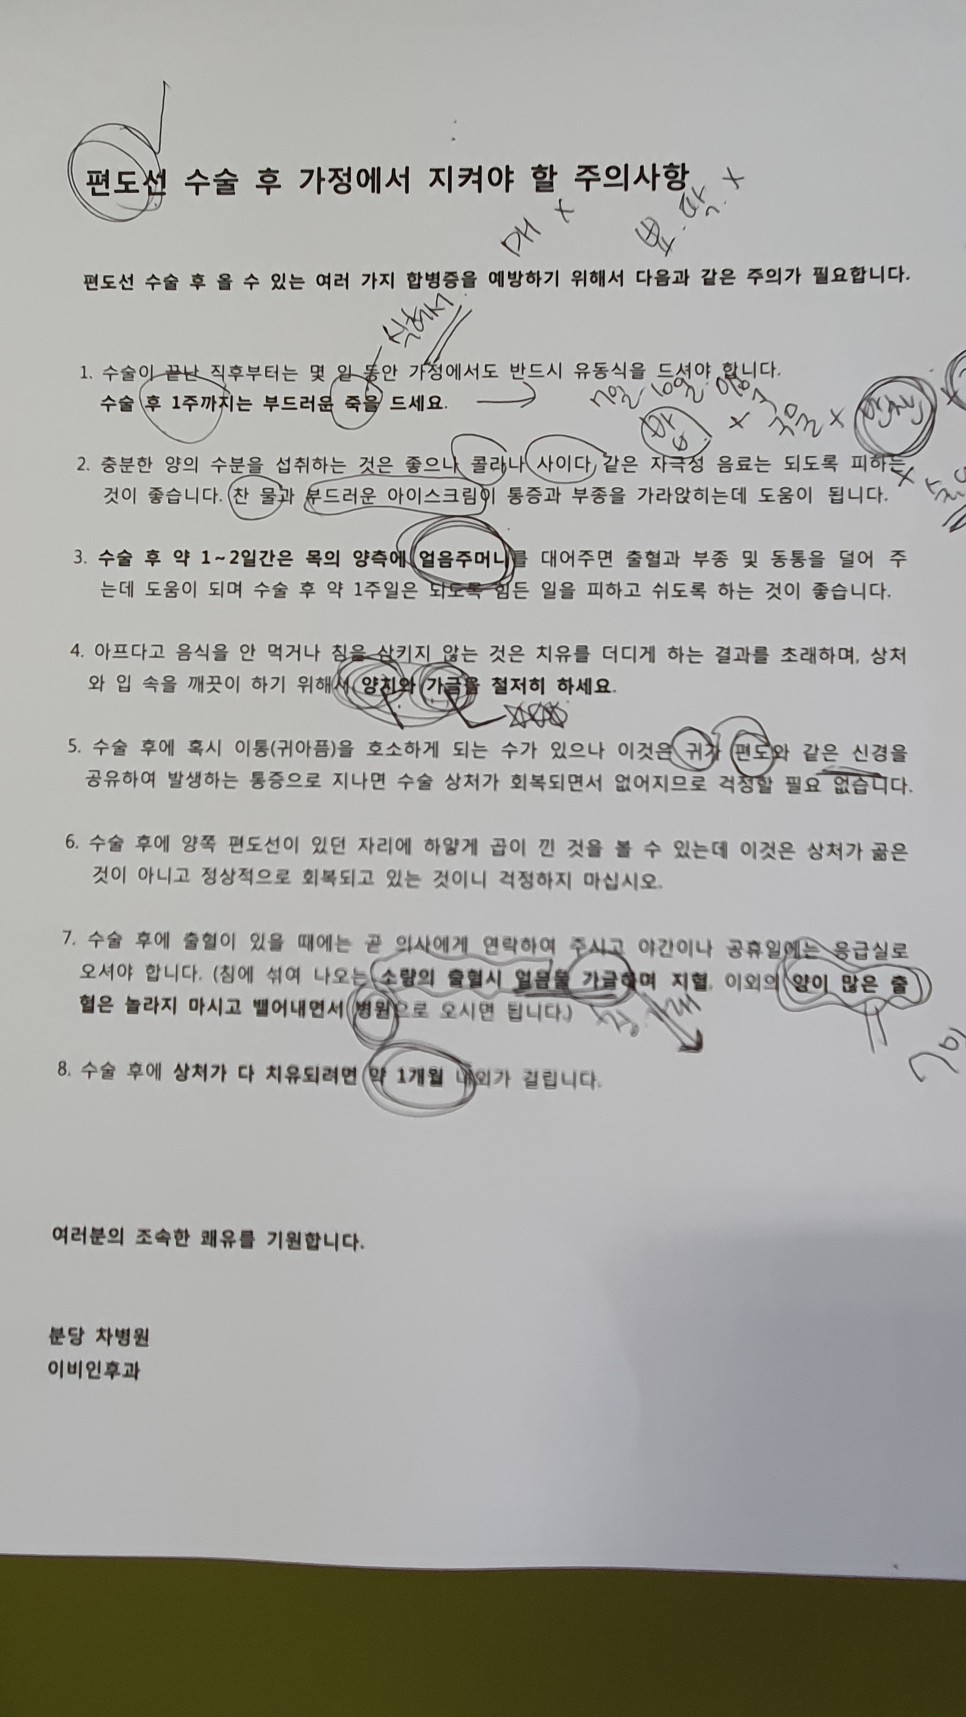 편도선 수술 후 가정에서 지켜야 할 주의사항
편도선 수술 후 올 수 있는 여러 가지 합병증을 예방하기 위해서 다음과 같은 주의가 필요합니다.
1. 수술이 끝난 직후부터는 몇 일 동안 가정에서도 반드시 유동식을 드셔야 합니다.
수술 후 1주까지는 부드러운 죽을 드세요.
7일 10일
밥 x
2. 충분한 양의 수분을 섭취하는 것은 좋으나 콜라나 사이다 같은 자극성 음료는 되도록 피하는
것이 좋습니다. 찬 물과 부드러운 아이스크림이 통증과 부종을 가라앉히는데 도움이 됩니다.
3. 수술 후 약 1~2일간은 목의 양측에 얼음주머니를 대어주면 출혈과 부종 및 동통을 덜어 주
는데 도움이 되며 수술 후 약 1주일은 되도록 힘든 일을 피하고 쉬도록 하는 것이 좋습니다.
4. 아프다고 음식을 안 먹거나 침을 삼키지 않는 것은 치유를 더디게 하는 결과를 초래하며, 상처
와 입 속을 깨끗이 하기 위해서 양치와 가글을 철저히 하세요.
5. 수술 후에 혹시 이통(귀아픔)을 호소하게 되는 수가 있으나 이것은 귀가 편도와 같은 신경을
공유하여 발생하는 통증으로 지나면 수술 상처가 회복되면서 없어지므로 걱정할 필요 없습니다.
6. 수술 후에 양쪽 편도선이 있던 자리에 하얗게 곱이 낀 것을 볼 수 있는데 이것은 상처가 곪은
것이 아니고 정상적으로 회복되고 있는 것이니 걱정하지 마십시오.
7. 수술 후에 출혈이 있을 때에는 곧 의사에게 연락하여 주시고 야간이나 공휴일에는 응급실로
오셔야 합니다. (침에 섞여 나오는 소량의 출혈시 얼음물 가글하며 지혈, 이외의 양이 많은 출
혈은 놀라지 마시고 뱉어내면서 병원으로 오시면 됩니다.)
8. 수술 후에 상처가 다 치유되려면 약 1개월 내외가 걸립니다.
여러분의 조속한 쾌유를 기원합니다.
분당 차병원
이비인후과